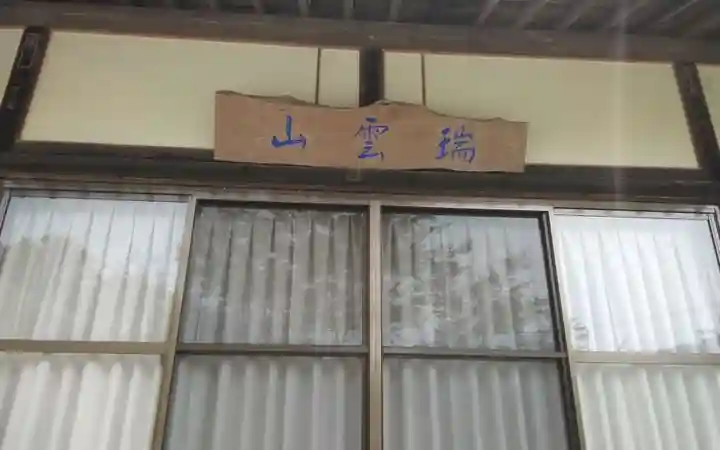 瑞雲山